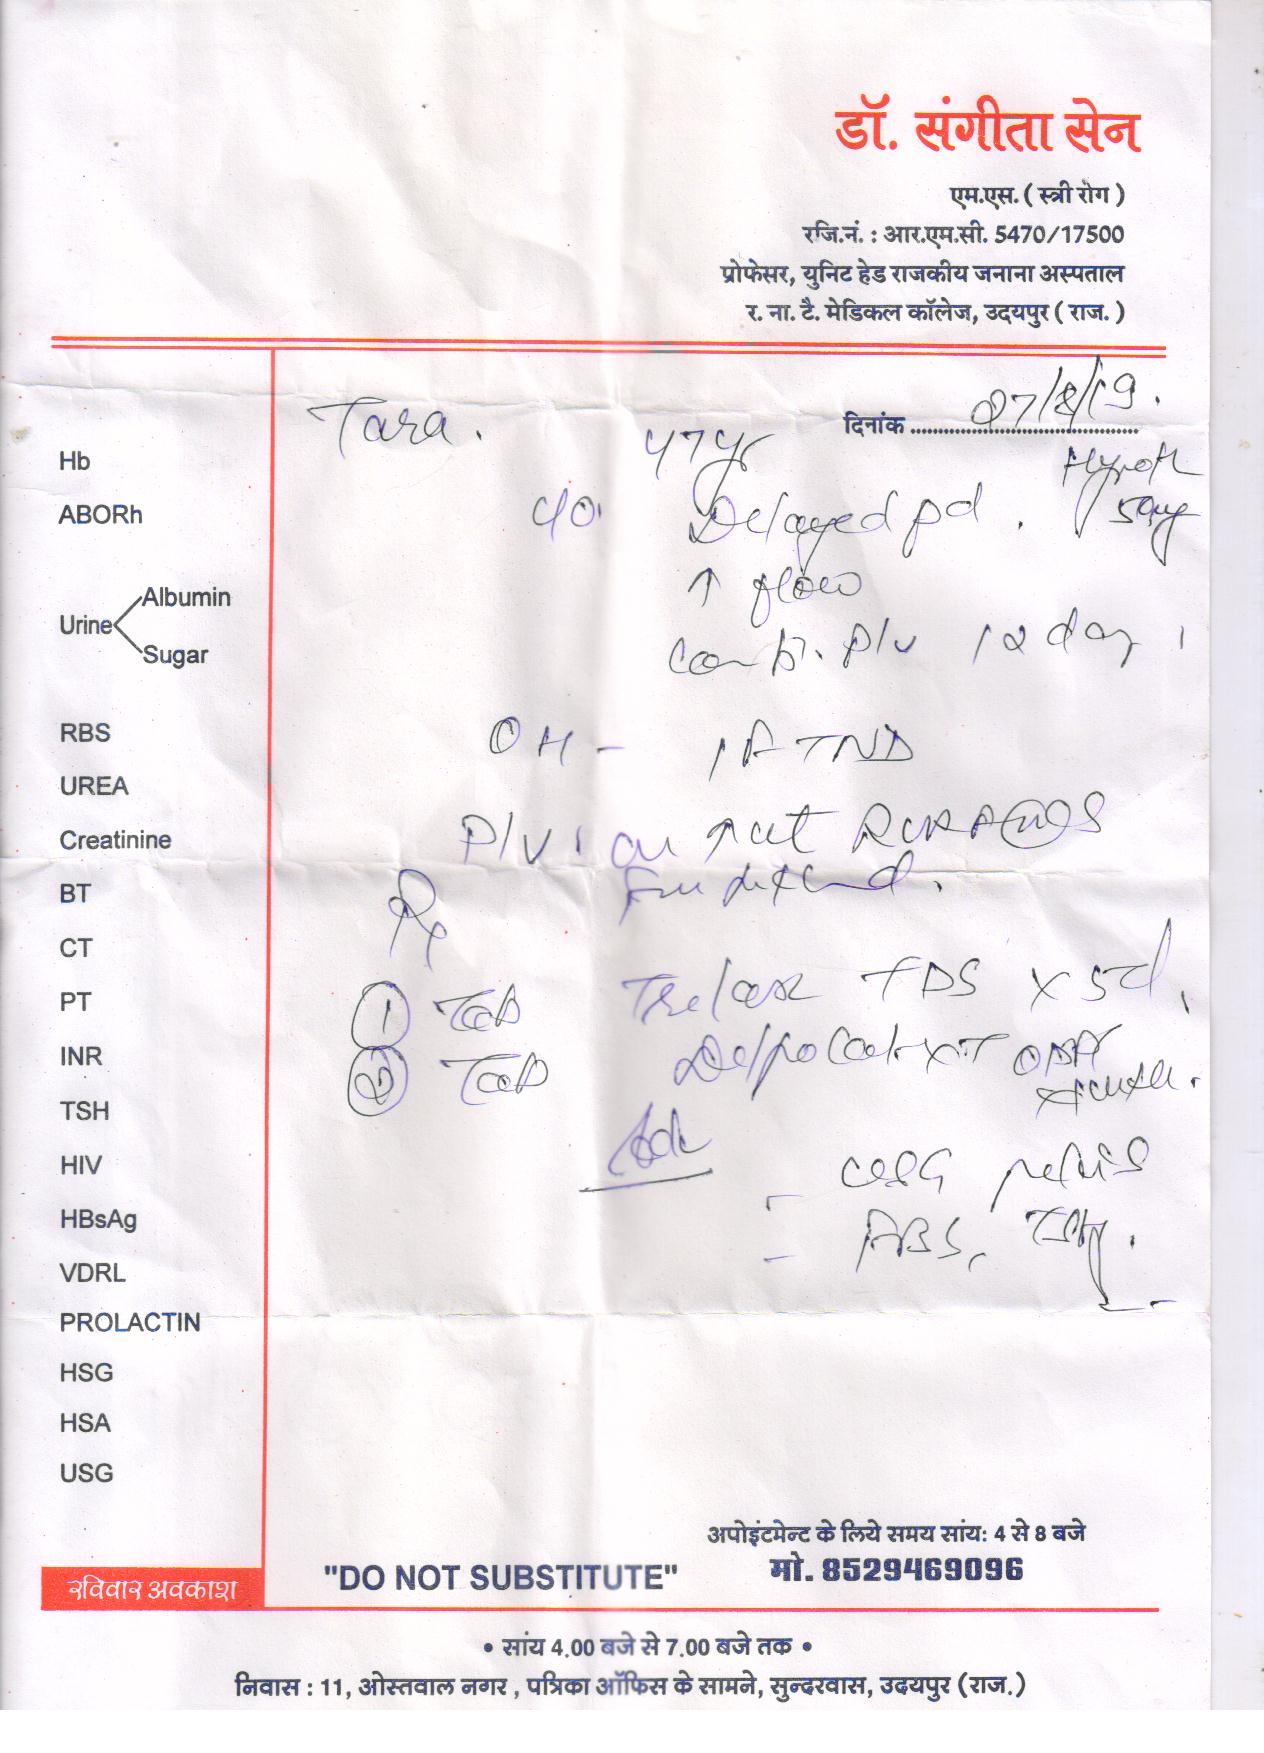 डॉ. संगीता सेन
एम.एस. ( स्त्री रोग )
रजि.नं. : आर.एम.सी. 5470/17500
प्रोफेसर, युनिट हेड राजकीय जनाना अस्पताल
र. ना. टै. मेडिकल कॉलेज, उदयपुर ( राज. )
दिनांक 07/8/19.
Tara. 47yr
Hb
ABORh
c/o. Delayed pd.
↑ flow
Urine Albumin
Sugar
P/v 12 day
RBS
OH -
UREA
Creatinine
P/v
BT
Rx
CT
PT
① Tab TDS x 5d
INR
② Tab
TSH
Adv
HIV
- USG pelvis
HBsAg
- RBS, TSH.
VDRL
PROLACTIN
HSG
HSA
USG
अपोइंटमेन्ट के लिये समय सांय: 4 से 8 बजे
रविवार अवकाश
"DO NOT SUBSTITUTE"
मो. 8529469096
• सांय 4.00 बजे से 7.00 बजे तक •
निवास : 11, ओस्तवाल नगर , पत्रिका ऑफिस के सामने, सुन्दरवास, उदयपुर (राज.)